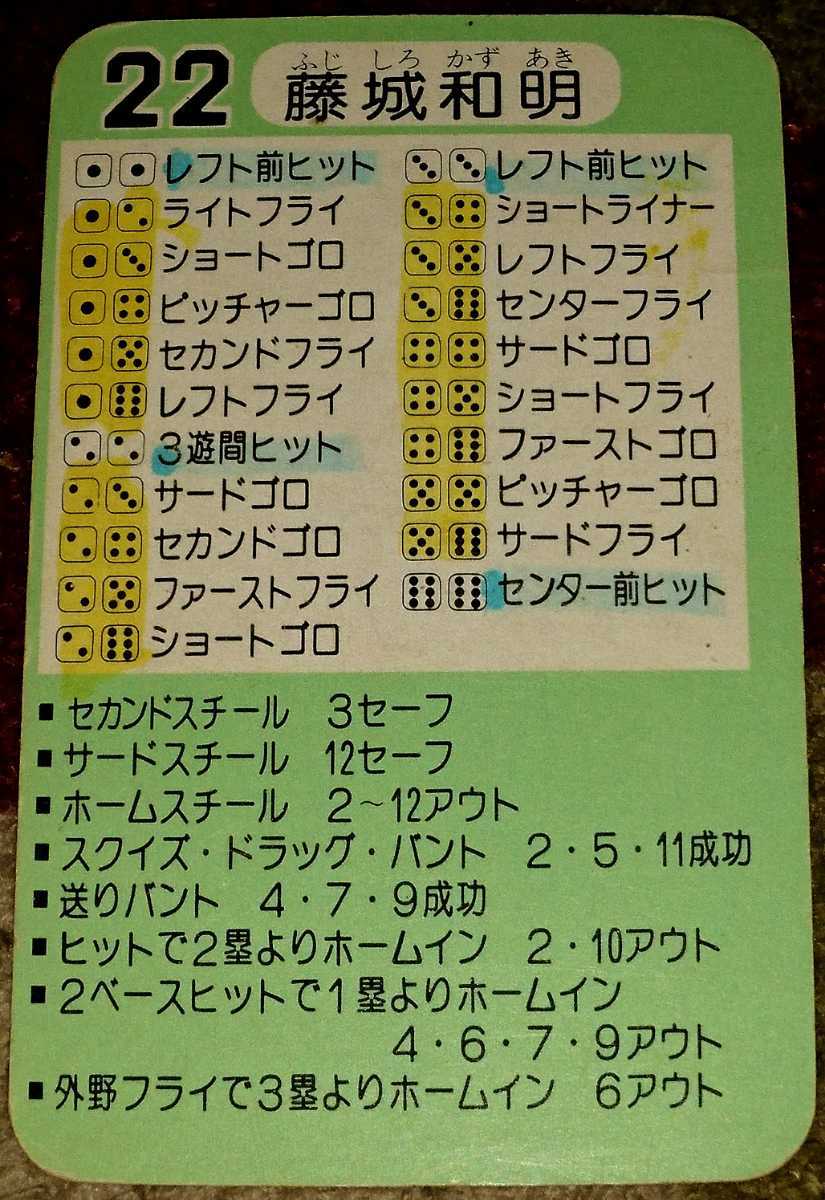 22
ふじ しろ かず あき
藤城和明
レフト前ヒット
ライトフライ
ショートゴロ
ピッチャーゴロ
セカンドフライ
レフトフライ
3遊間ヒット
サードゴロ
セカンドゴロ
ファーストフライ
ショートゴロ
レフト前ヒット
ショートライナー
レフトフライ
センターフライ
サードゴロ
ショートフライ
ファーストゴロ
ピッチャーゴロ
サードフライ
センター前ヒット
■セカンドスチール 3セーフ
■サードスチール 12セーフ
■ホームスチール 2〜12アウト
■スクイズ・ドラッグ・バント 2・5・11成功
■送りバント 4・7・9成功
■ヒットで2塁よりホームイン 2・10アウト
■2ベースヒットで1塁よりホームイン
4・6・7・9アウト
■外野フライで3塁よりホームイン 6アウト